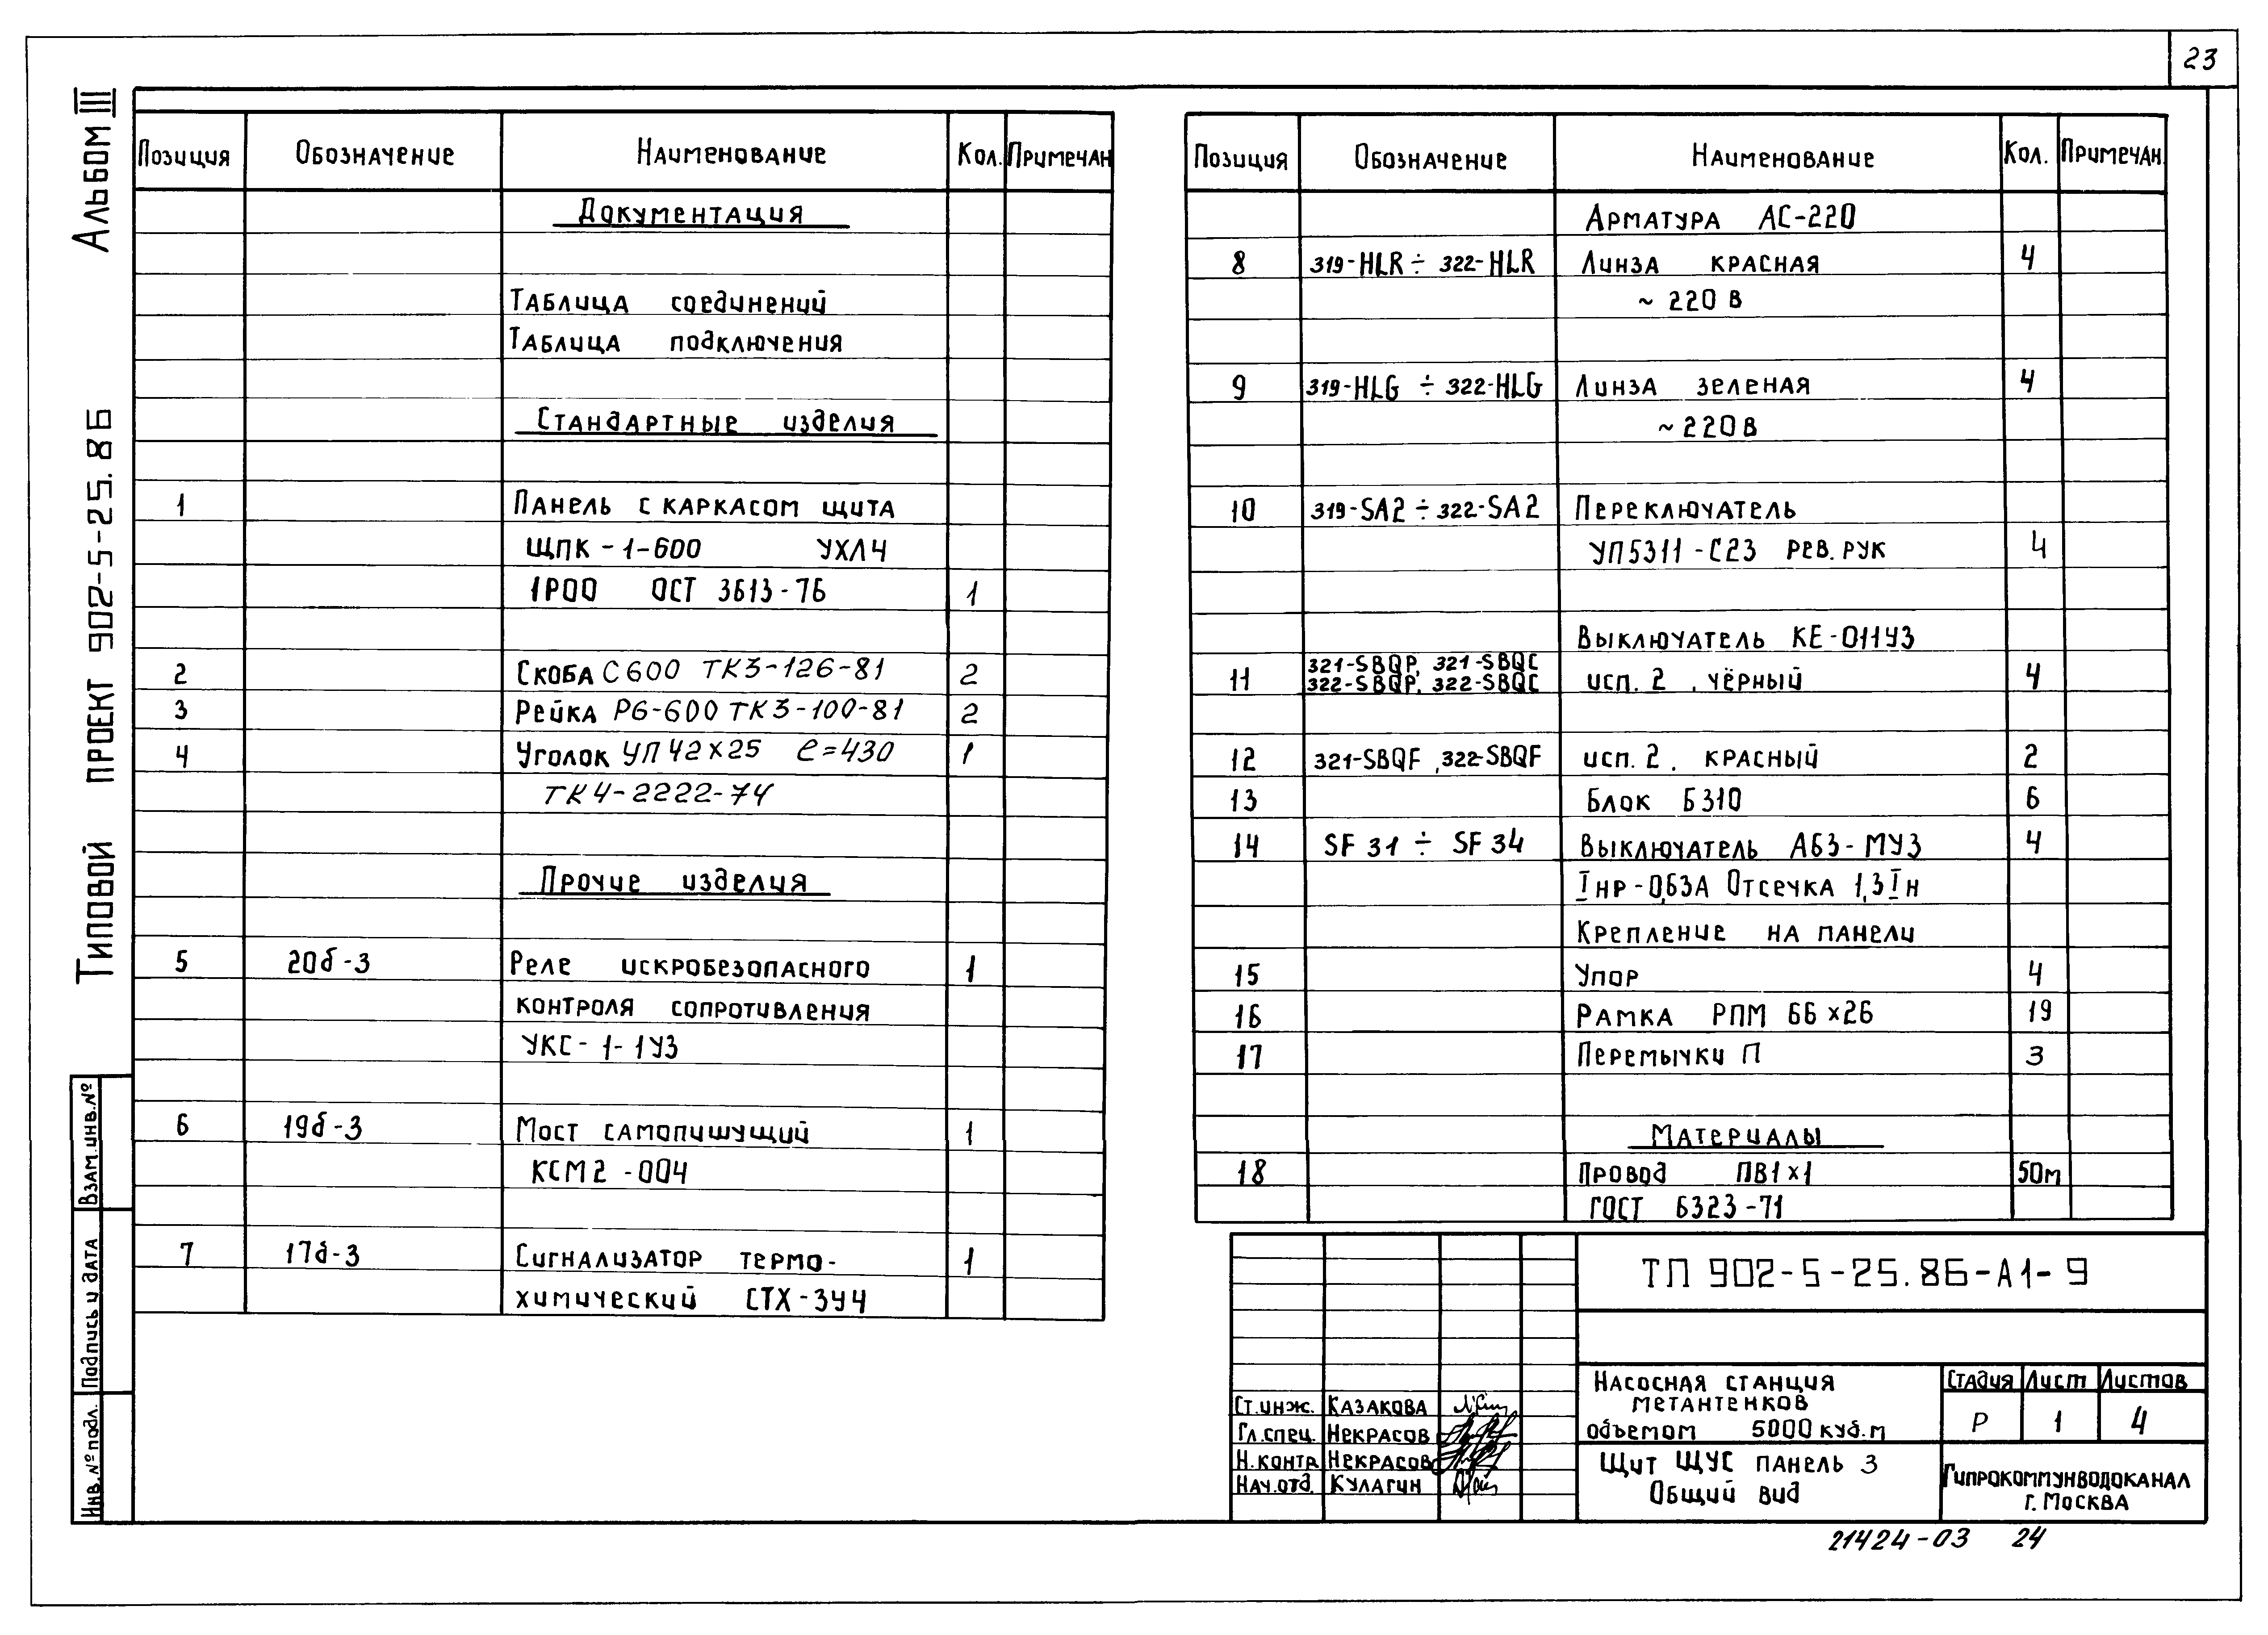 23
Альбом III
Типовой проект 902-5-25.86
Позиция Обозначение Наименование Кол. Примечан
Документация
Таблица соединений
Таблица подключения
Стандартные изделия
1 Панель с каркасом щита
ЩПК-1-600 УХЛ4
1Р00 ОСТ 3613-76 1
2 Скоба С600 ТК3-126-81 2
3 Рейка Р6-600 ТК3-100-81 2
4 Уголок УП 42х25 ℓ=430 1
ТК4-2222-74
Прочие изделия
5 20б-3 Реле искробезопасного 1
контроля сопротивления
УКС-1-1У3
6 19б-3 Мост самопишущий 1
КСМ2-004
7 17б-3 Сигнализатор термо- 1
химический СТХ-3У4
Позиция Обозначение Наименование Кол. Примечан.
Арматура АС-220
8 319-HLR ÷ 322-HLR Линза красная 4
~ 220 В
9 319-HLG ÷ 322-HLG Линза зеленая 4
~ 220 В
10 319-SA2 ÷ 322-SA2 Переключатель
УП5311-С23 рев. рук 4
Выключатель КЕ-011У3
321-SBQP, 321-SBQC
11 322-SBQP, 322-SBQC исп. 2, чёрный 4
12 321-SBQF, 322-SBQF исп. 2, красный 2
13 Блок Б310 6
14 SF 31 ÷ SF 34 Выключатель А63-МУ3 4
Iнр-0,63А Отсечка 1,3Iн
Крепление на панели
15 Упор 4
16 Рамка РПМ 66х26 19
17 Перемычки П 3
Материалы
18 Провод ПВ1х1 50м
ГОСТ 6323-71
ТП 902-5-25.86-А1-9
Насосная станция
метантенков
объемом 5000 куб.м
Стадия Лист Листов
Р 1 4
Щит ЩУС панель 3
Общий вид
Гипрокоммунводоканал
г. Москва
Ст.инж. Казакова
Гл.спец. Некрасов
Н.контр Некрасов
Нач.отд. Кулагин
Взам.инв.№
Подпись и дата
Инв.№ подл.
21424-03 24